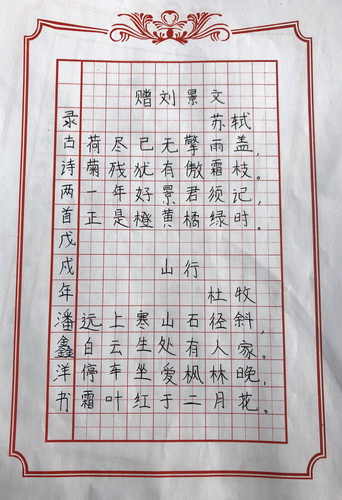 赠刘景文
苏轼
荷尽已无擎雨盖，
菊残犹有傲霜枝。
一年好景君须记，
正是橙黄橘绿时。
山行
杜牧
远上寒山石径斜，
白云生处有人家。
停车坐爱枫林晚，
霜叶红于二月花。
录古诗两首戊戌年潘鑫洋书